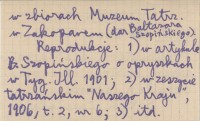 w zbiorach Muzeum Tatrz.
w Zakopanem (dar Baltazara Szopińskiego).
Reprodukcje: 1) w artykule
B. Szopińskiego o opryszkach
w Tyg. Ill. 1901; 2) w zeszycie
tatrzańskim "Naszego Kraju",
1906, t. 2, nr 6; 3) itd.